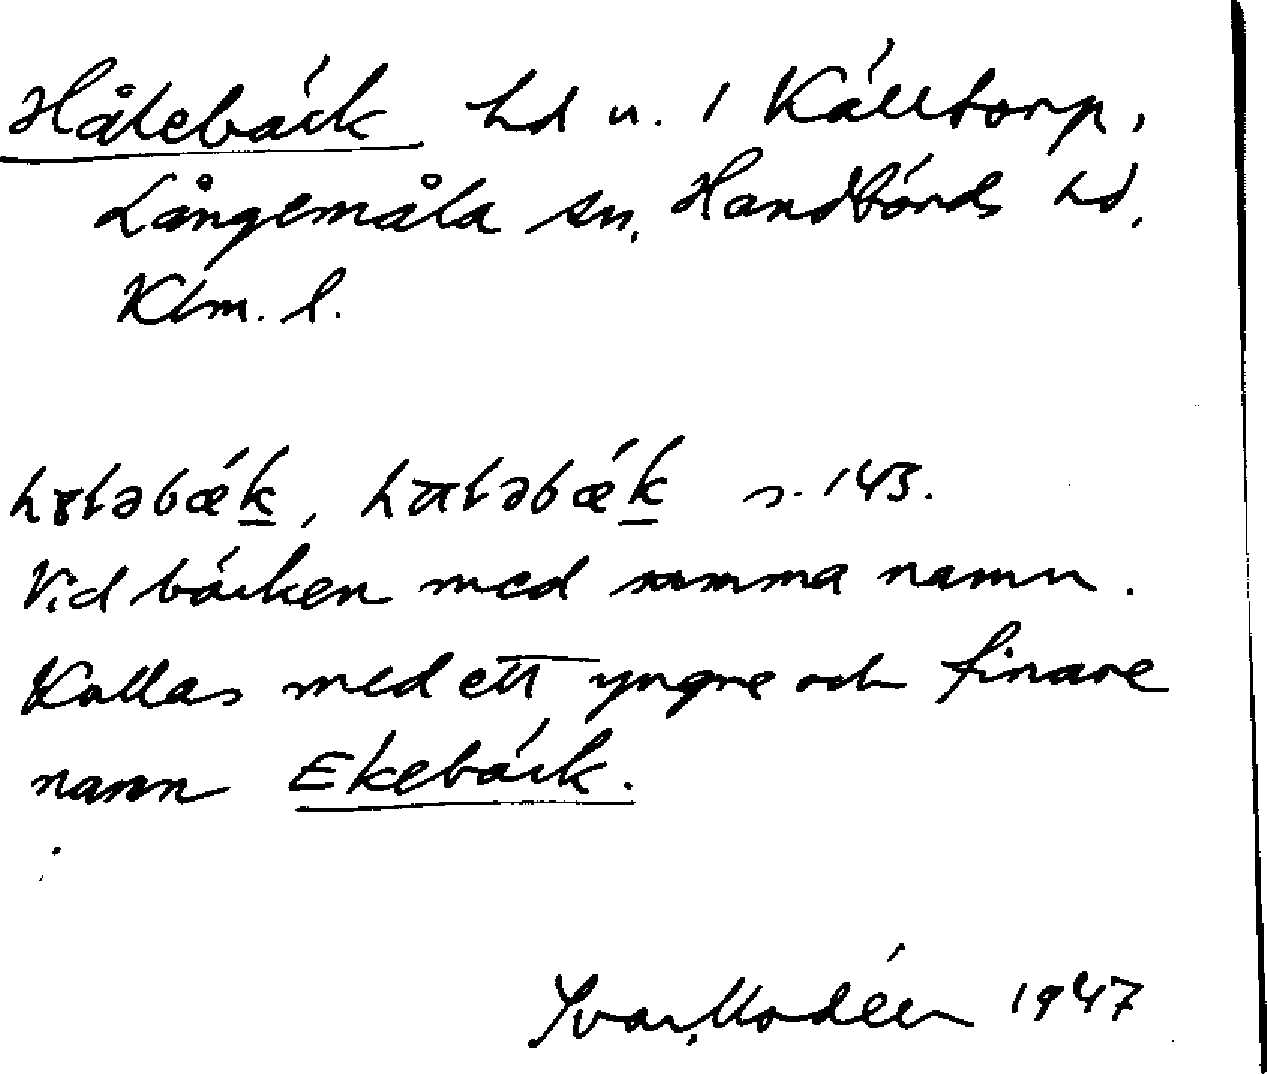 Hålebäck hd u. / Källtorp,
Långemåla sn, Handbörds hd,
Klm. l.
s. 143.
Vid bäcken med samma namn.
Kallas med ett yngre och finare
namn Ekebäck.
Yvar Modéer 1947